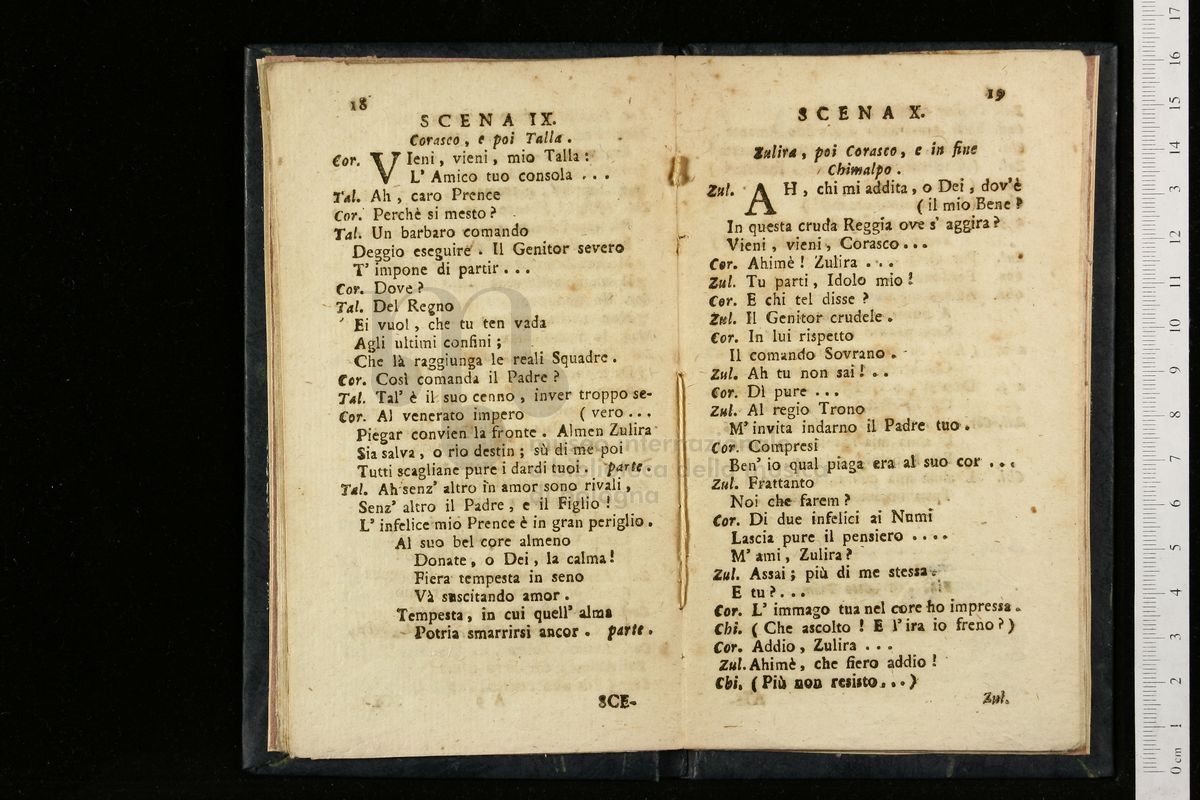 18
SCENA IX.
Corasco, e poi Talla.
Cor. VIeni, vieni, mio Talla:
L' Amico tuo consola ...
Tal. Ah, caro Prence
Cor. Perchè si mesto?
Tal. Un barbaro comando
Deggio eseguire. Il Genitor severo
T' impone di partir...
Cor. Dove?
Tal. Del Regno
Ei vuol, che tu ten vada
Agli ultimi confini;
Che là raggiunga le reali Squadre.
Cor. Così comanda il Padre?
Tal. Tal' è il suo cenno, inver troppo se-
Cor. Al venerato impero (vero...
Piegar convien la fronte. Almen Zulira
Sia salva, o rio destin; sù di me poi
Tutti scagliane pure i dardi tuoi. parte.
Tal. Ah senz' altro in amor sono rivali,
Senz' altro il Padre, e il Figlio!
L' infelice mio Prence è in gran periglio.
Al suo bel core almeno
Donate, o Dei, la calma!
Fiera tempesta in seno
Và suscitando amor.
Tempesta, in cui quell' alma
Potria smarrirsi ancor. parte.
SCE-
19
SCENA X.
Zulira, poi Corasco, e in fine
Chimalpo.
Zul. AH, chi mi addita, o Dei, dov'è
(il mio Bene?
In questa cruda Reggia ove s' aggira?
Vieni, vieni, Corasco...
Cor. Ahimè! Zulira ...
Zul. Tu parti, Idolo mio!
Cor. E chi tel disse?
Zul. Il Genitor crudele.
Cor. In lui rispetto
Il comando Sovrano.
Zul. Ah tu non sai!...
Cor. Dì pure ...
Zul. Al regio Trono
M' invita indarno il Padre tuo.
Cor. Compresi
Ben' io qual piaga era al suo cor ...
Zul. Frattanto
Noi che farem?
Cor. Di due infelici ai Numi
Lascia pure il pensiero ....
M' ami, Zulira?
Zul. Assai; più di me stessa.
E tu?...
Cor. L' immago tua nel core ho impressa.
Chi. (Che ascolto! E l' ira io freno?)
Cor. Addio, Zulira ...
Zul. Ahimè, che fiero addio!
Chi. (Più non resisto...)
Zul.
museo internazionale
biblioteca della musica
di bologna
0 cm 1 2 3 4 5 6 7 8 9 10 11 12 13 14 15 16 17